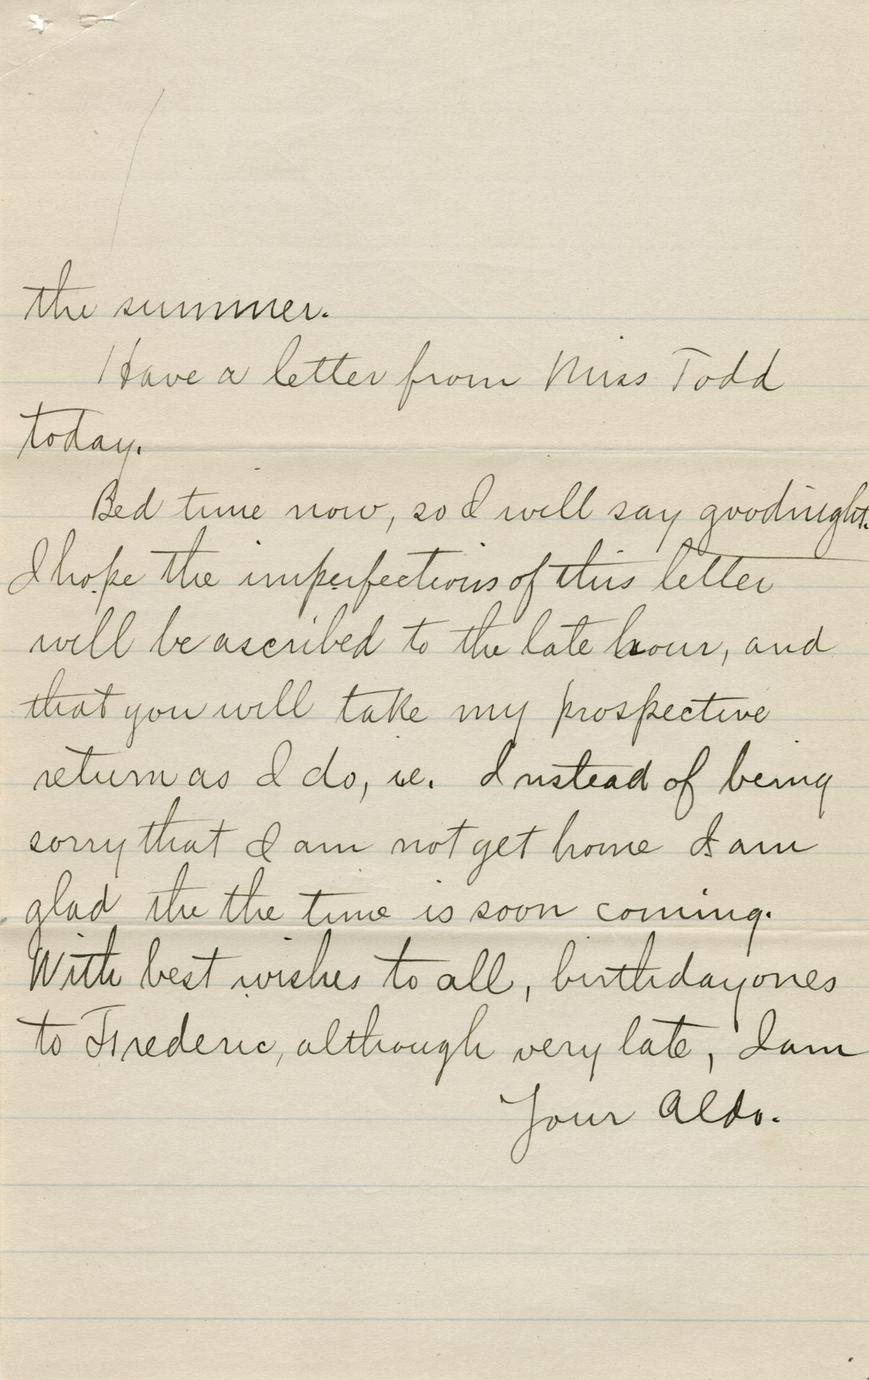 the summer.
Have a letter from Miss Todd
today.
Bed time now, so I will say goodnight.
I hope the imperfections of this letter
will be ascribed to the late hour, and
that you will take my prospective
return as I do, ie. Instead of being
sorry that I am not get home I am
glad the the time is soon coming.
With best wishes to all, birthday ones
to Frederic, although very late, I am
Your Aldo.